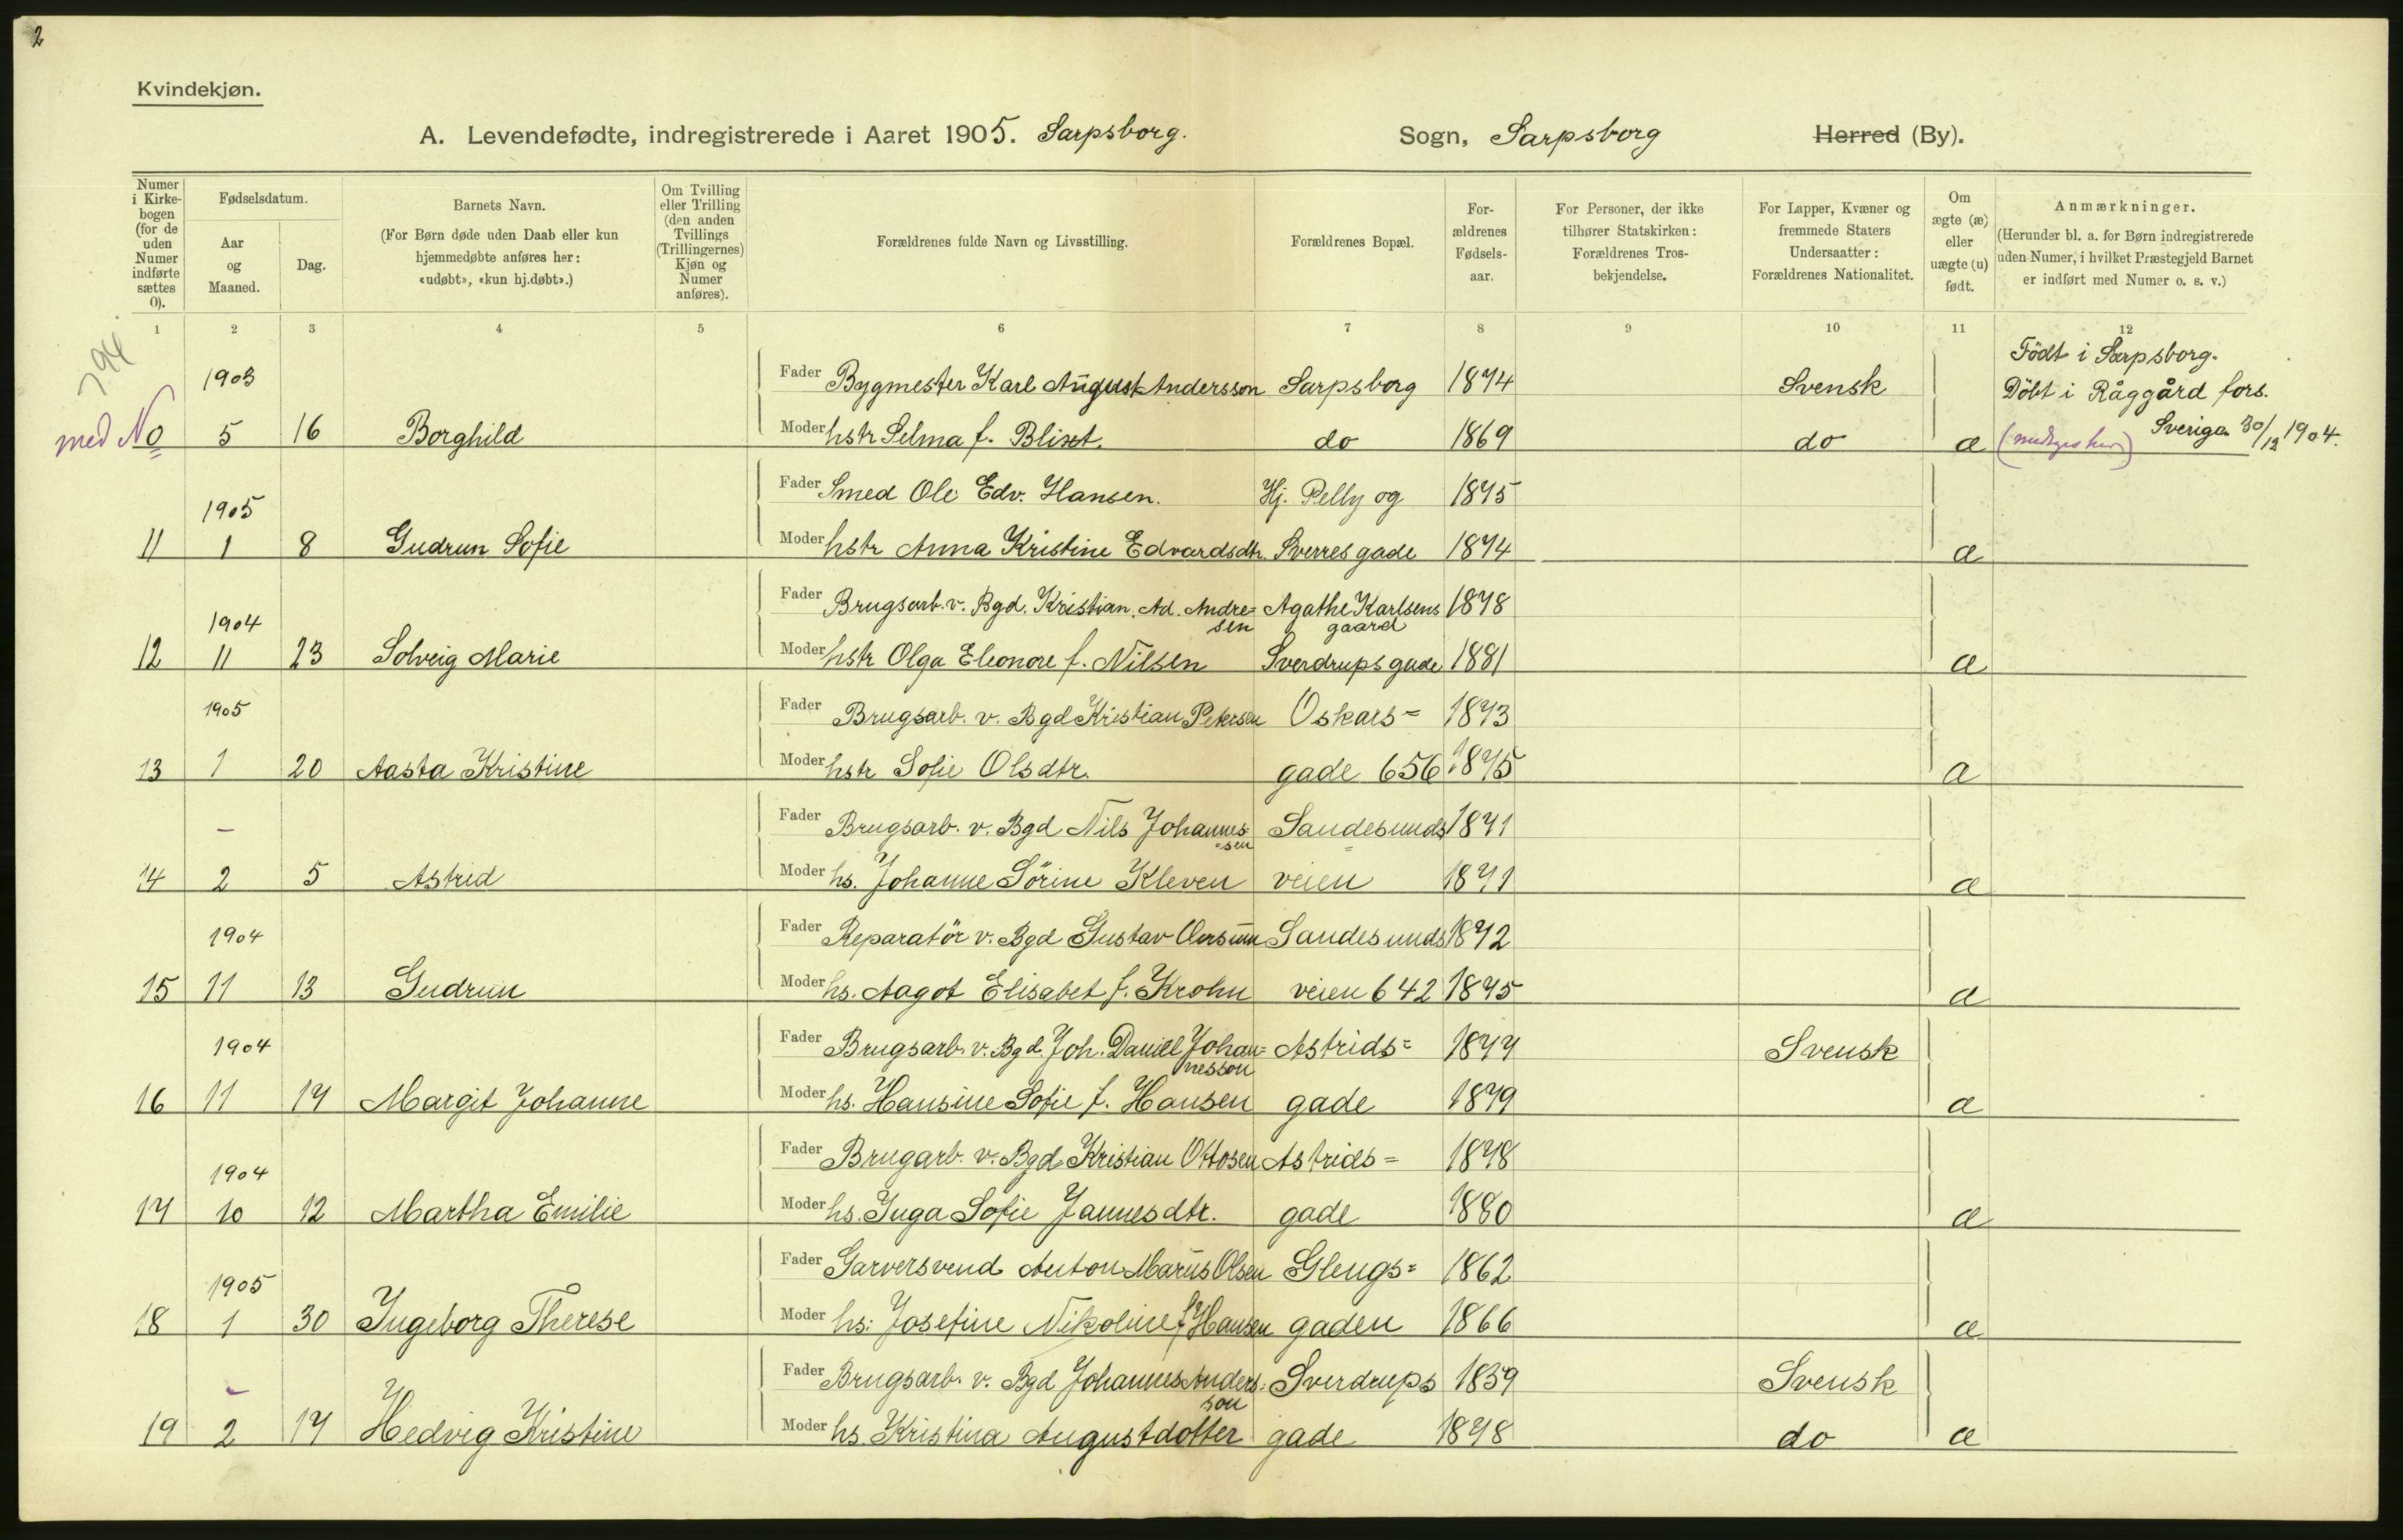 2
Kvindekjøn.
A. Levendefødte, indregistrerede i Aaret 1905. Sarpsborg. Sogn, Sarpsborg Herred (By).
Numer i Kirke-bogen (for de uden Numer indførte sættes 0).
Fødselsdatum.
Aar og Maaned.
Dag.
Barnets Navn.
(For Børn døde uden Daab eller kun hjemmedøbte anføres her: «udøbt», «kun hj.døbt».)
Om Tvilling eller Trilling (den anden Tvillings (Trillingernes) Kjøn og Numer anføres).
Forældrenes fulde Navn og Livsstilling.
Forældrenes Bopæl.
For-ældrenes Fødsels-aar.
For Personer, der ikke tilhører Statskirken: Forældrenes Tros-bekjendelse.
For Lapper, Kvæner og fremmede Staters Undersaatter: Forældrenes Nationalitet.
Om ægte (æ) eller uægte (u) født.
Anmærkninger.
(Herunder bl. a. for Børn indregistrerede uden Numer, i hvilket Præstegjeld Barnet er indført med Numer o. s. v.)
1 2 3 4 5 6 7 8 9 10 11 12
794
Födt i Sarpsborg.
1903 Fader Bygmester Karl August Andersson Sarpsborg 1874 Svensk Döbt i Råggård fors.
med No 5 16 Borghild Moder hstr Selma f. Blixt. do 1869 do æ Sverige 30/12 1904.
1905 Fader Smed Ole Edv. Hansen. Hj. Pelly og 1875
11 1 8 Gudrun Sofie Moder hstr Anna Kristine Edvardsdtr. Sverres gade 1874 æ
1904 Fader Brugsarb. v. Bgd. Kristian. Ad. Andre= Agathe Karlsens 1878
sen gaard
12 11 23 Solveig Marie Moder hstr Olga Eleonore f. Nilsen Sverdrups gade 1881 æ
1905 Fader Brugsarb. v. Bgd Kristian Petersen Oskars= 1873
13 1 20 Aasta Kristine Moder hstr Sofie Olsdtr. gade 656 1875 æ
– Fader Brugsarb. v. Bgd Nils Johannes= Sandesunds 1871
=sen =
14 2 5 Astrid Moder hs. Johanne Sörine Kleven veien 1871 æ
1904 Fader Reparatör v. Bgd Gustav Sandesunds 1872
15 11 13 Gudrun Moder hs. Aagot Elisabet f. Krohn veien 642 1875 æ
1904 Fader Brugsarb. v. Bgd. Joh. Daniel Johan= Astrids= 1877 Svensk
nesson
16 11 17 Margit Johanne Moder hs. Hansine Sofie f. Hansen gade 1879 æ
1904 Fader Brugarb. v. Bgd Kristian Ottosen Astrids= 1878
17 10 12 Martha Emilie Moder hs. Inga Sofie Jannesdtr. gade 1880 æ
1905 Fader Garversvend Anton Marius Olsen Glengs= 1862
18 1 30 Ingeborg Therese Moder hs: Josefine Nikoline f Hansen gaden 1866 æ
– Fader Brugsarb. v. Bgd Johannes Anders= Sverdrups 1859 Svensk
son
19 2 17 Hedvig Kristine Moder hs. Kristina Augustdotter gade 1878 do æ